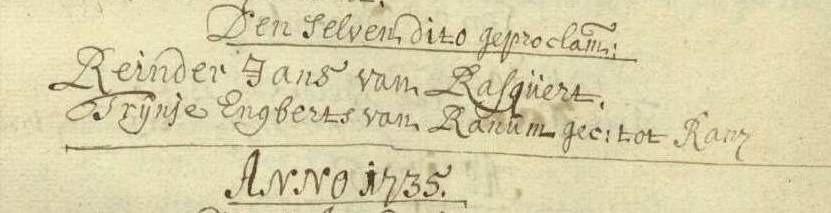 Den selven dito geproclam:
Reinder Jans van Rasquert.
Trijnje Engberts van Ranum gec: tot Ranz
ANNO 1735.